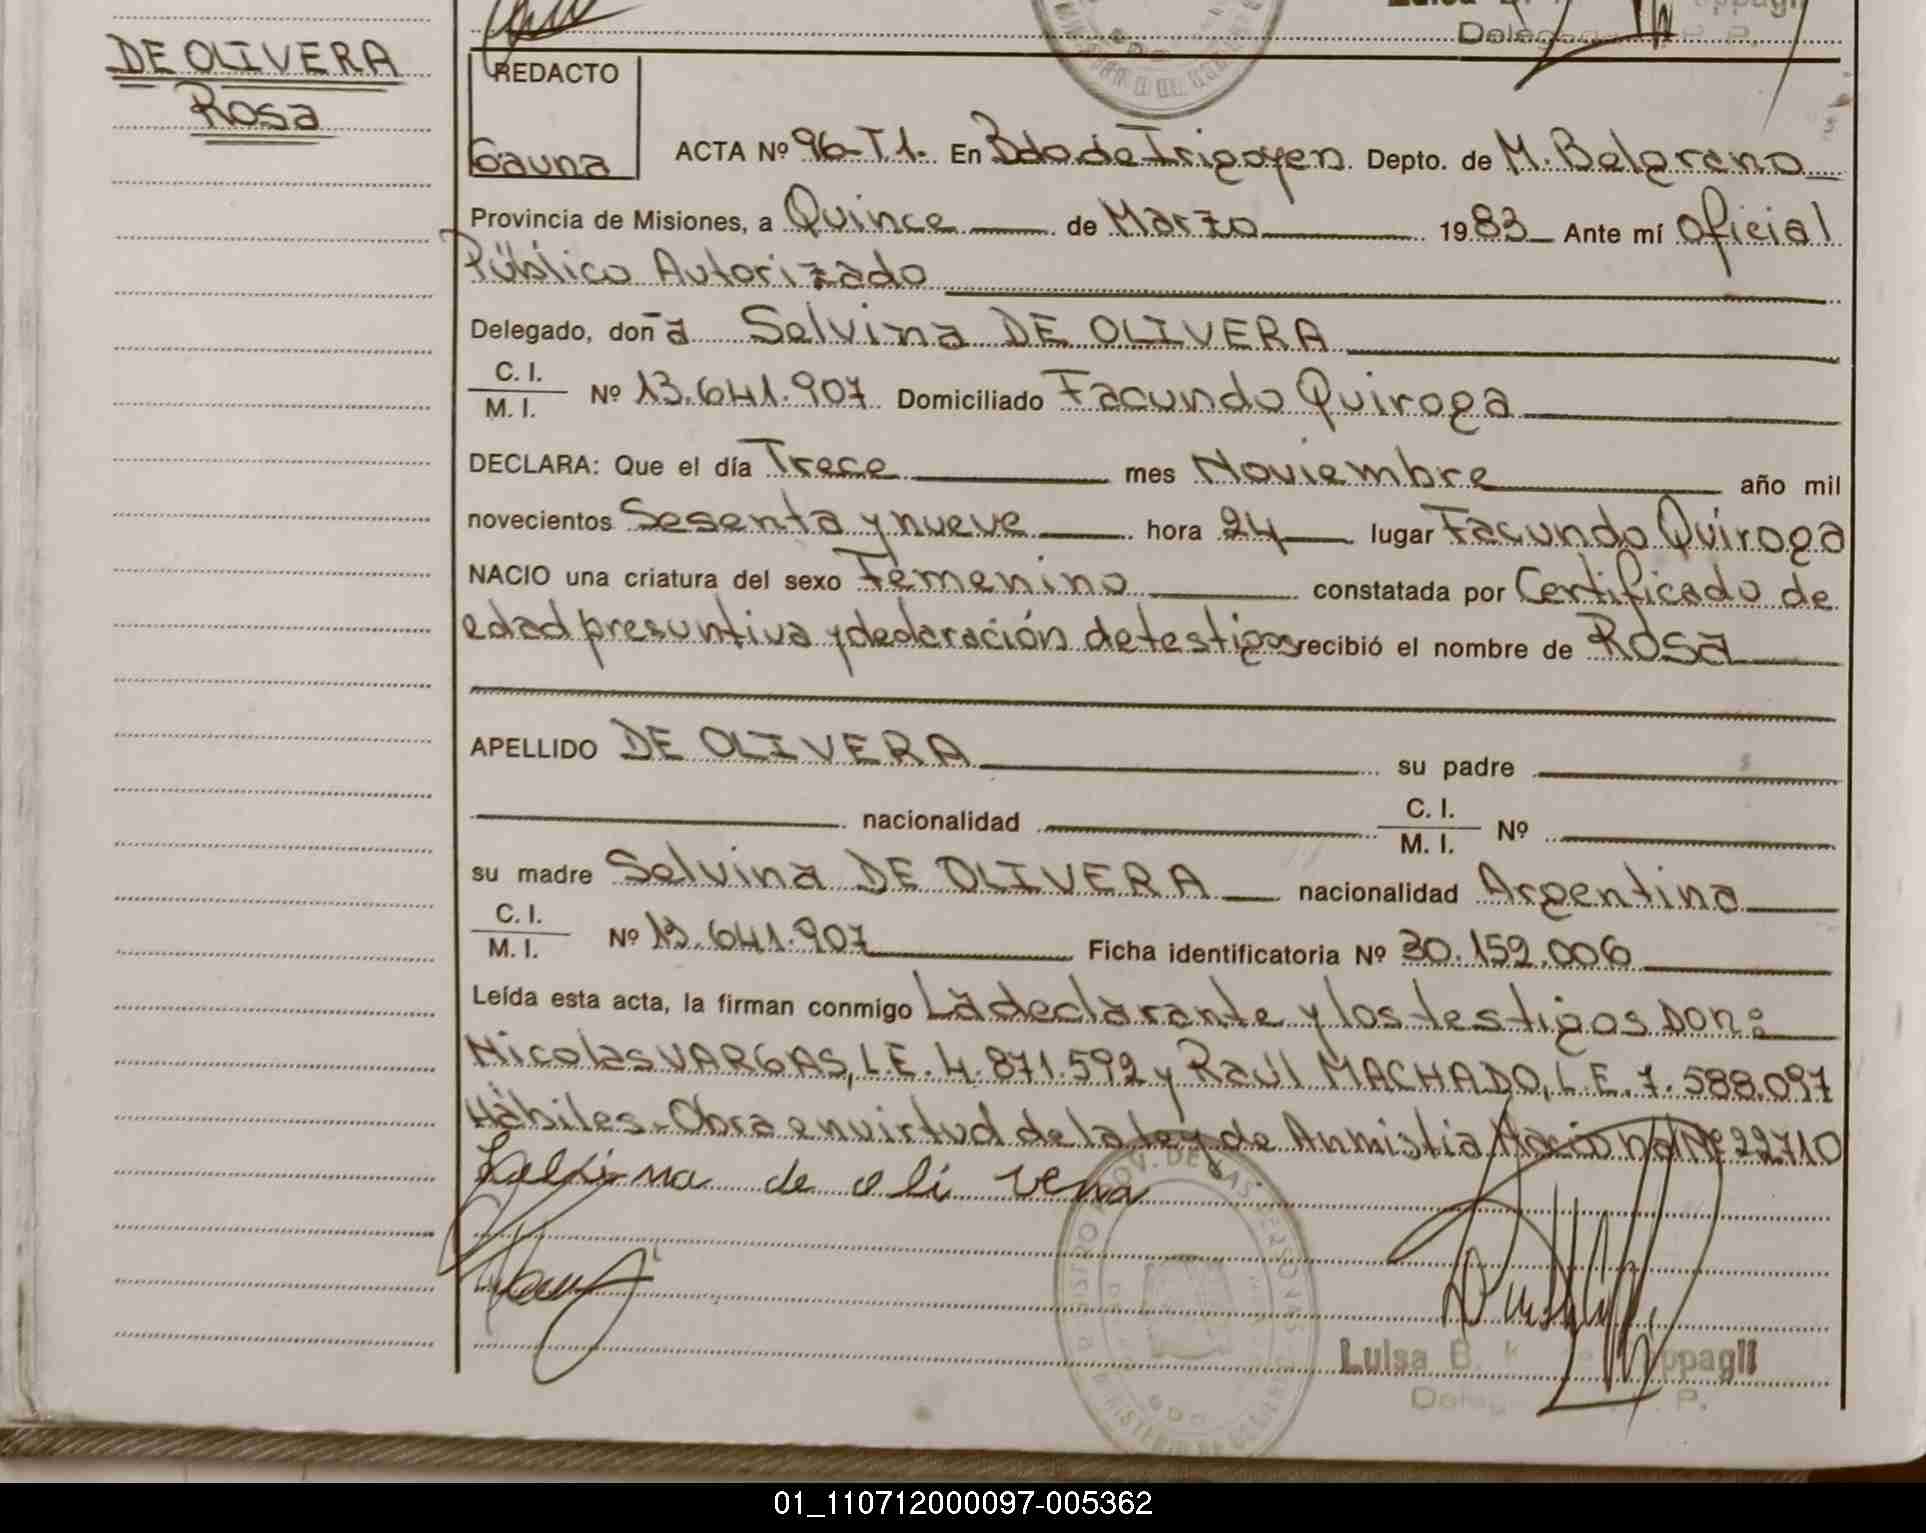 DE OLIVERA
Rosa
REDACTO
Gauna
ACTA Nº 96-T1. En Bdo de Irigoyen. Depto. de M. Belgrano
Provincia de Misiones, a Quince de Marzo 1983 Ante mí Oficial
Público Autorizado
Delegado, doña Selvina DE OLIVERA
C. I.
M. I. Nº 13.641.907 Domiciliado Facundo Quiroga
DECLARA: Que el día Trece mes Noviembre año mil
novecientos Sesenta y nueve hora 24 lugar Facundo Quiroga
NACIO una criatura del sexo Femenino constatada por Certificado de
edad presuntiva y declaración de testigos recibió el nombre de Rosa
APELLIDO DE OLIVERA su padre
nacionalidad C. I.
M. I. Nº
su madre Selvina DE OLIVERA nacionalidad Argentina
C. I.
M. I. Nº 13.641.907 Ficha identificatoria Nº 30.159.006
Leída esta acta, la firman conmigo La declarante y los testigos Don:
Nicolas VARGAS, L.E. 4.871.592 y Raúl MACHADO, L.E. 7.588.097
Hábiles.-Obra en virtud de la ley de Anmistia Nacional Nº 22710
Selvina de oli vera
Luisa B.
01_110712000097-005362